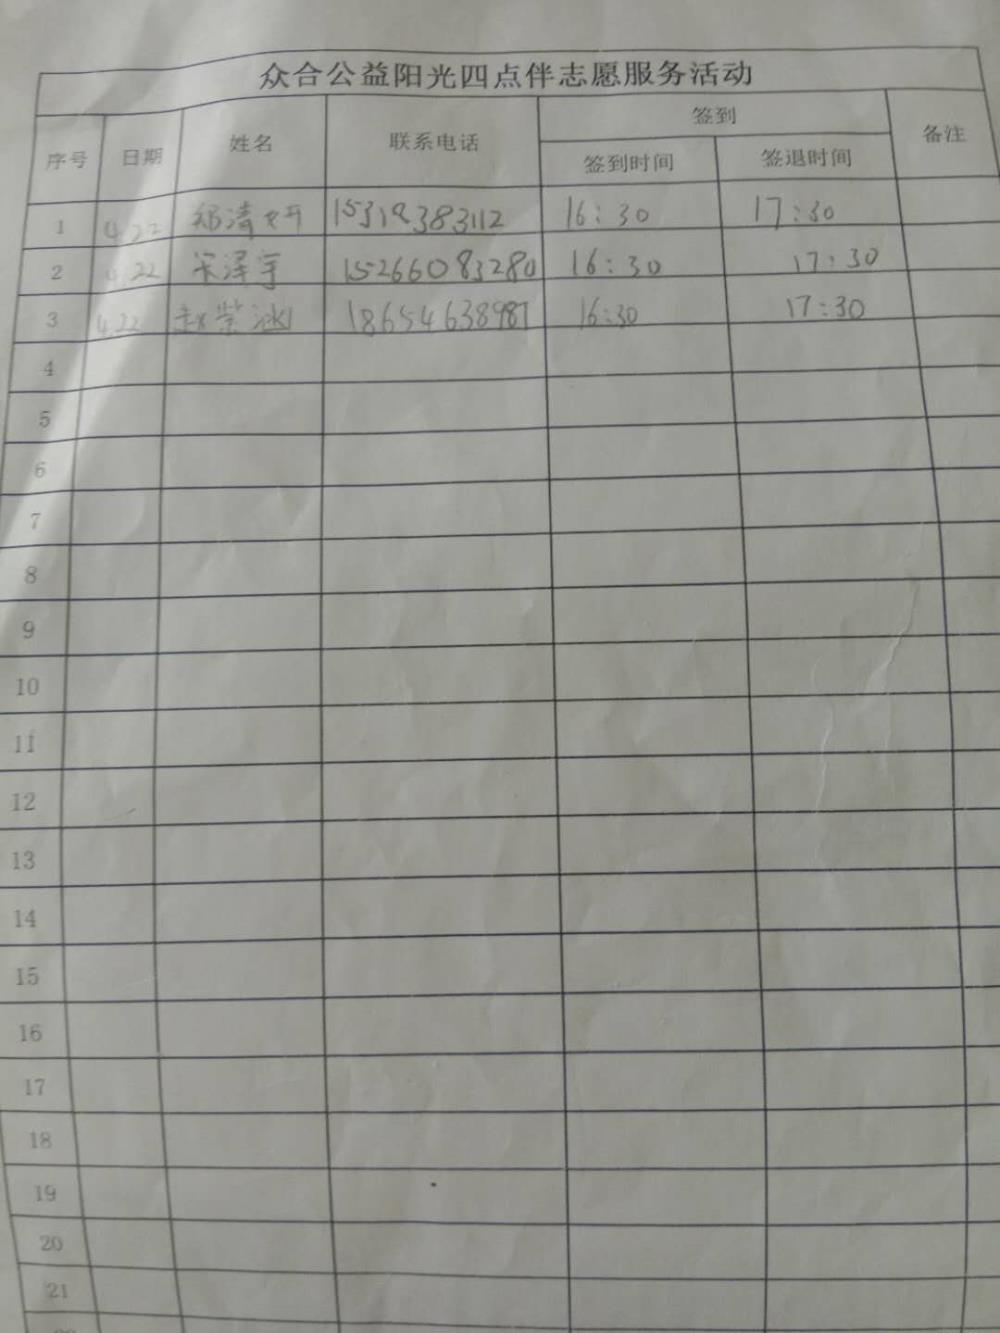 众合公益阳光四点伴志愿服务活动
序号 日期 姓名 联系电话 签到 备注
签到时间 签退时间
1 4.22 郑清妍 15319383112 16:30 17:30
2 4.22 宋泽宇 15266083280 16:30 17:30
3 4.22 赵紫冰 18654638987 16:30 17:30
4
5
6
7
8
9
10
11
12
13
14
15
16
17
18
19
20
21